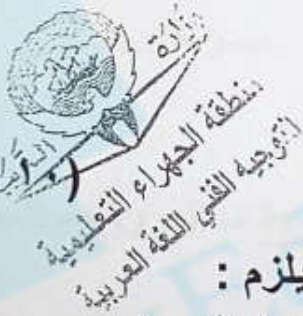 وزارة
التربية
منطقة الجهراء التعليمية
التوجيه الفني اللغة العربية
يلزم :